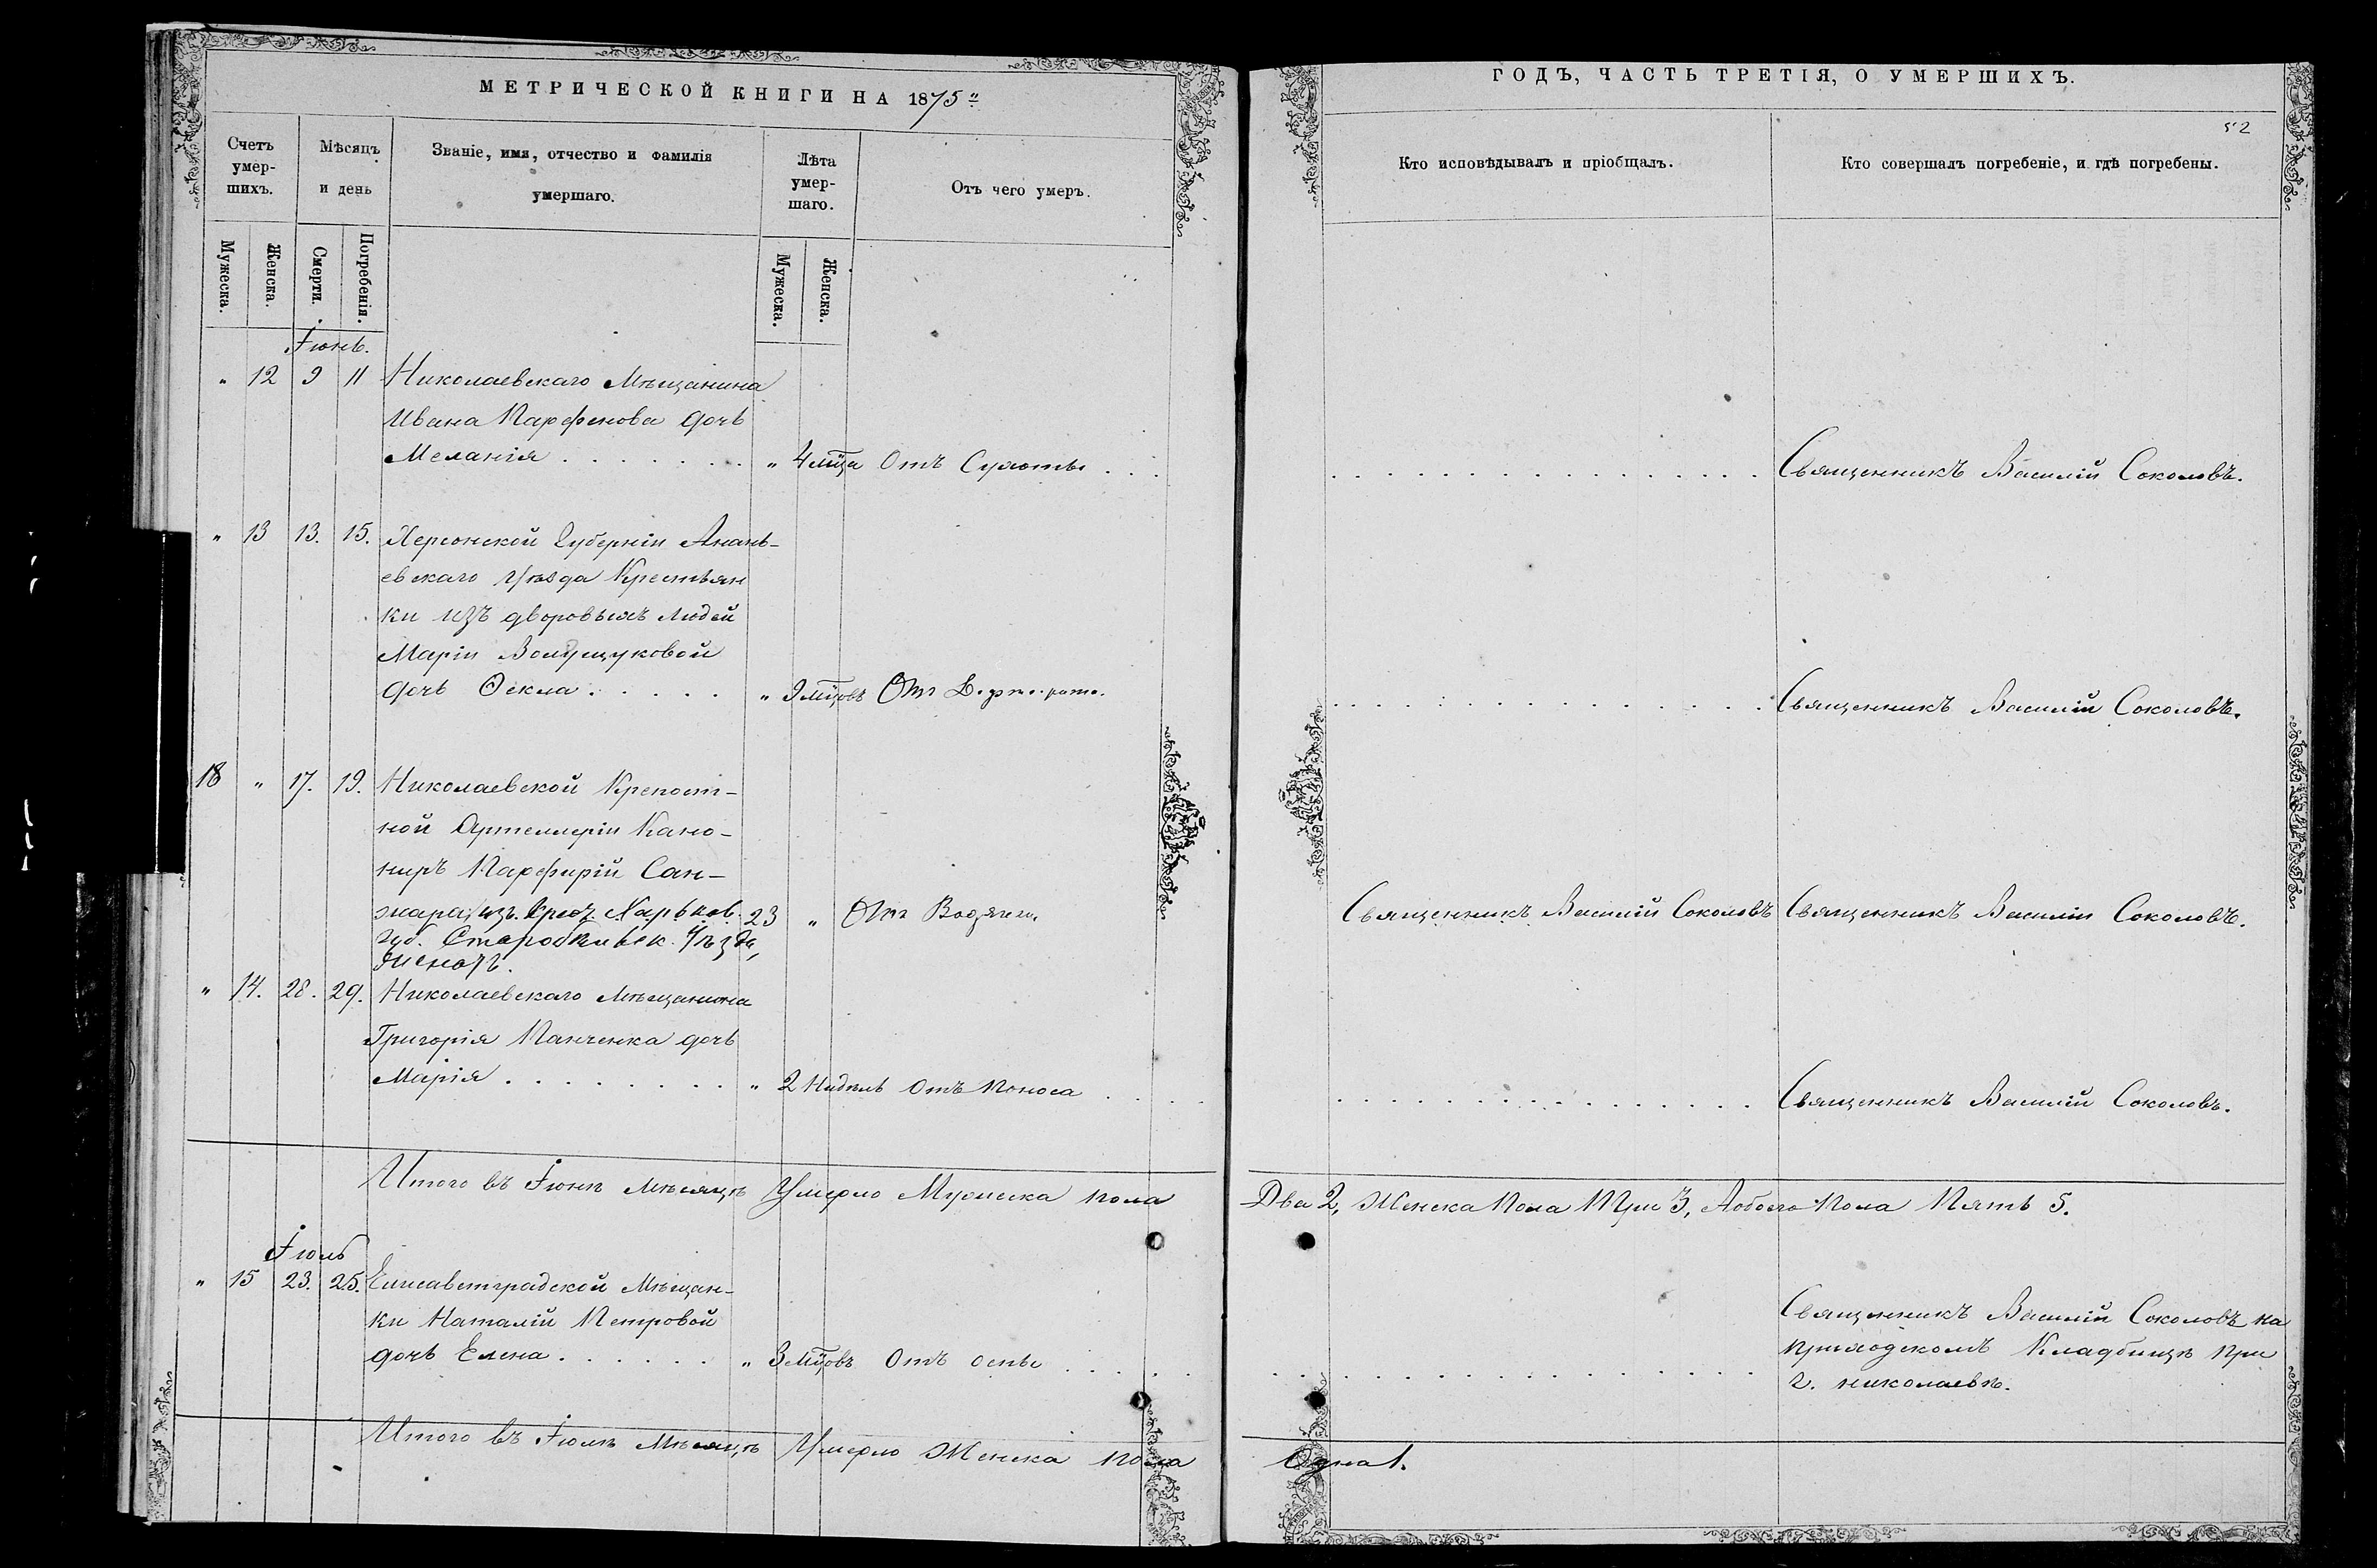 МЕТРИЧЕСКОЙ КНИГИ НА 1875
ГОДЪ, ЧАСТЬ ТРЕТІЯ, О УМЕРШИХЪ.
52
Счетъ умер-шихъ.
Мѣсяцъ и день
Званіе, имя, отчество и фамилія умершаго.
Лѣта умер-шаго.
Отъ чего умеръ.
Кто исповѣдывалъ и пріобщалъ.
Кто совершалъ погребеніе, и гдѣ погребены.
Мужеска.
Женска.
Смерти.
Погребенія.
Мужеска.
Женска.
Іюнь.
" 12 9 11 Николаевскаго Мѣщанина
Ивана Парфенова дочь
Меланія . . . . . . . " 4 мца Отъ Сухоты . . . Священникъ Василій Соколовъ.
" 13 13. 15. Херсонской Губерніи Анань-
евскаго уѣзда Крестьян
ки изъ дворовыхъ людей
Маріи
дочь Ѳекла . . . . . " 9 мцовъ Отъ Священникъ Василій Соколовъ.
18 " 17. 19. Николаевской Крепост-
ной Артеллеріи Кано-
ниръ Парфирій Сан-
жара, изъ крест. Харьков. 23 " Отъ Водянки. Священникъ Василій Соколовъ Священникъ Василій Соколовъ.
губ. Старобѣльск. уѣзда,
женатъ.
" 14. 28. 29. Николаевскаго мѣщанина
Григорія Панченка дочь
Марія . . . . . . . . " 2 Нидѣль Отъ Поноса . . . . Священникъ Василій Соколовъ.
Итого въ Іюнѣ Мѣсяцѣ Умерло Мужеска пола Два 2, Женска Пола Три 3, Аобоего Пола Пять 5.
Іюль
" 15 23. 25. Елисаветградской Мѣщан-
ки Наталій Петровой
дочь Елена . . . . . . " 3 мцовъ Отъ оспы . . . . Священникъ Василій Соколовъ на
приходскомъ Кладбищѣ при
г. николаевѣ.
Итого въ Іюлѣ Мѣсяцѣ Умерло Женска пола Одна 1.